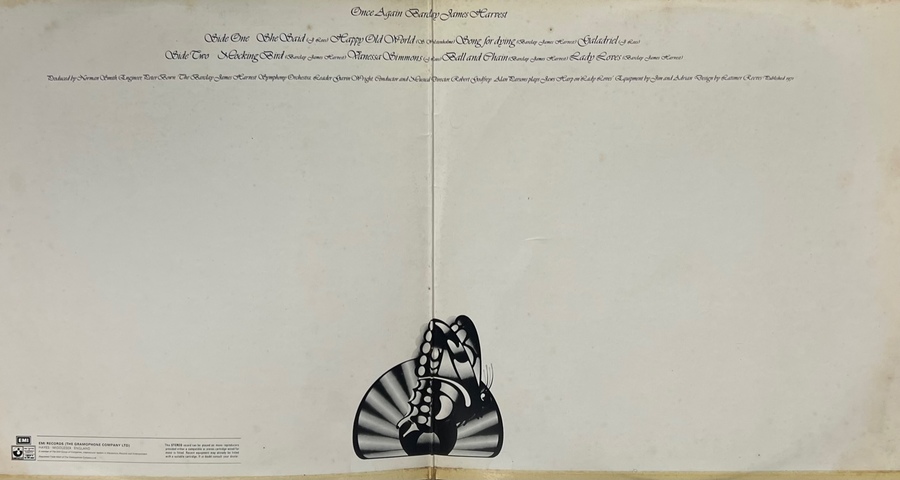 Once Again Barclay James Harvest
Side One She Said (J Lees) Happy Old World (S Wolstenholme) Song for dying (Barclay James Harvest) Galadriel (J Lees)
Side Two Mocking Bird (Barclay James Harvest) Vanessa Simmons (J Lees) Ball and Chain (Barclay James Harvest) Lady Loves (Barclay James Harvest)
Produced by Norman Smith Engineer Peter Bown The Barclay James Harvest Symphony Orchestra Leader Gavin Wright Conductor and Musical Director Robert Godfrey Alan Parsons plays Jaws Harp on Lady Loves Equipment by Jim and Adrian Design by Latimer Reeves Published 1971
EMI
EMI RECORDS (THE GRAMOPHONE COMPANY LTD)
HAYES MIDDLESEX ENGLAND